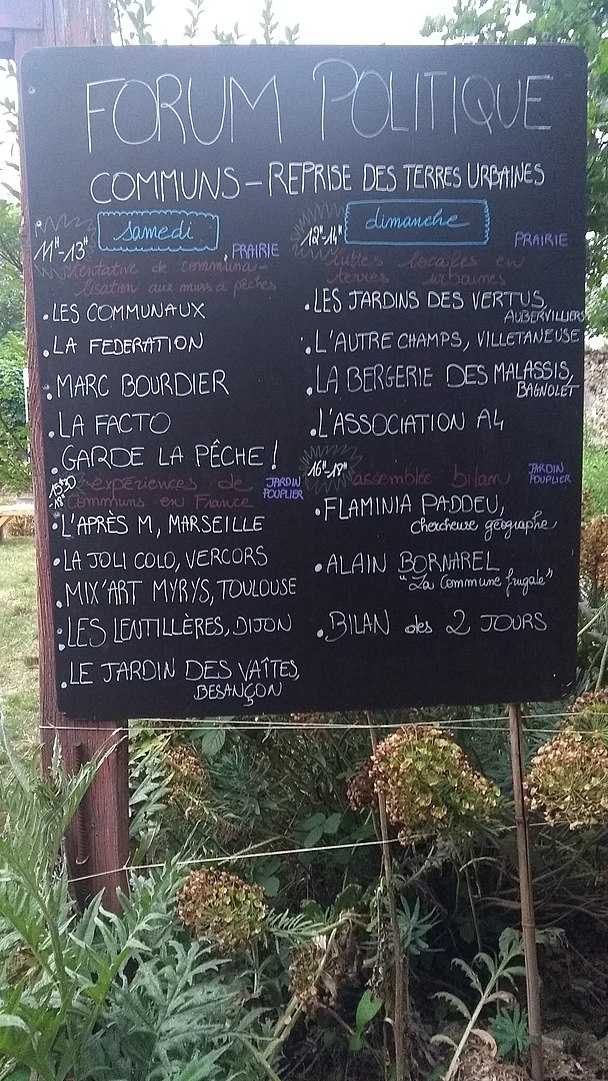 FORUM POLITIQUE
COMMUNS – REPRISE DES TERRES URBAINES
samedi
11H-13H
PRAIRIE
tentative de communa-
lisation aux murs à pêches
• LES COMMUNAUX
• LA FEDERATION
• MARC BOURDIER
• LA FACTO
• GARDE LA PÊCHE !
15H30
-18H
expériences de
communs en France
JARDIN
POUPLIER
• L'APRÈS M, MARSEILLE
• LA JOLI COLO, VERCORS
• MIX'ART MYRYS, TOULOUSE
• LES LENTILLÈRES, DIJON
• LE JARDIN DES VAÎTES,
BESANÇON
dimanche
12H-14H
PRAIRIE
luttes locales en
terres urbaines
• LES JARDINS DES VERTUS,
AUBERVILLIERS
• L'AUTRE CHAMPS, VILLETANEUSE
• LA BERGERIE DES MALASSIS,
BAGNOLET
• L'ASSOCIATION A4
16H-18H
assemblée bilan
JARDIN
POUPLIER
• FLAMINIA PADDEU,
chercheuse géographe
• ALAIN BORNAREL
"La Commune frugale"
• BILAN des 2 JOURS